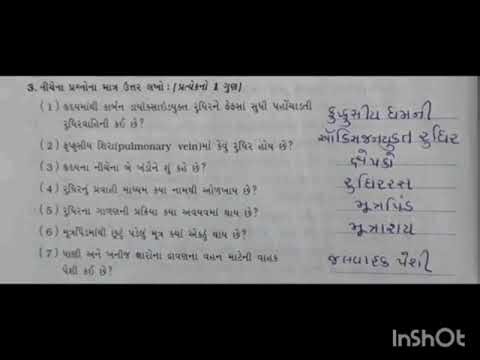 3. નીચેના પ્રશ્નોના માત્ર ઉત્તર લખો : (પ્રત્યેકનો 1 ગુણ)
(1) હૃદયમાંથી કાર્બન ડાયૉક્સાઇડયુક્ત રુધિરને ફેફસાં સુધી પહોંચાડતી
રુધિરવાહિની કઈ છે? ફુપ્ફુસીય ધમની
(2) ફુપ્ફુસીય શિરા(pulmonary vein)માં કેવું રુધિર હોય છે? ઑક્સિજનયુક્ત રુધિર
(3) હૃદયના નીચેના બે ખંડોને શું કહે છે? ક્ષેપકો
(4) રુધિરનું પ્રવાહી માધ્યમ કયા નામથી ઓળખાય છે? રુધિરરસ
(5) રુધિરના ગાળણની પ્રક્રિયા કયા અવયવમાં થાય છે? મૂત્રપિંડ
(6) મૂત્રપિંડમાંથી છૂટું પડેલું મૂત્ર ક્યાં એકઠું થાય છે? મૂત્રાશય
(7) પાણી અને ખનીજ ક્ષારોના દ્રાવણના વહન માટેની વાહક
પેશી કઈ છે? જલવાહક પેશી
InShOt